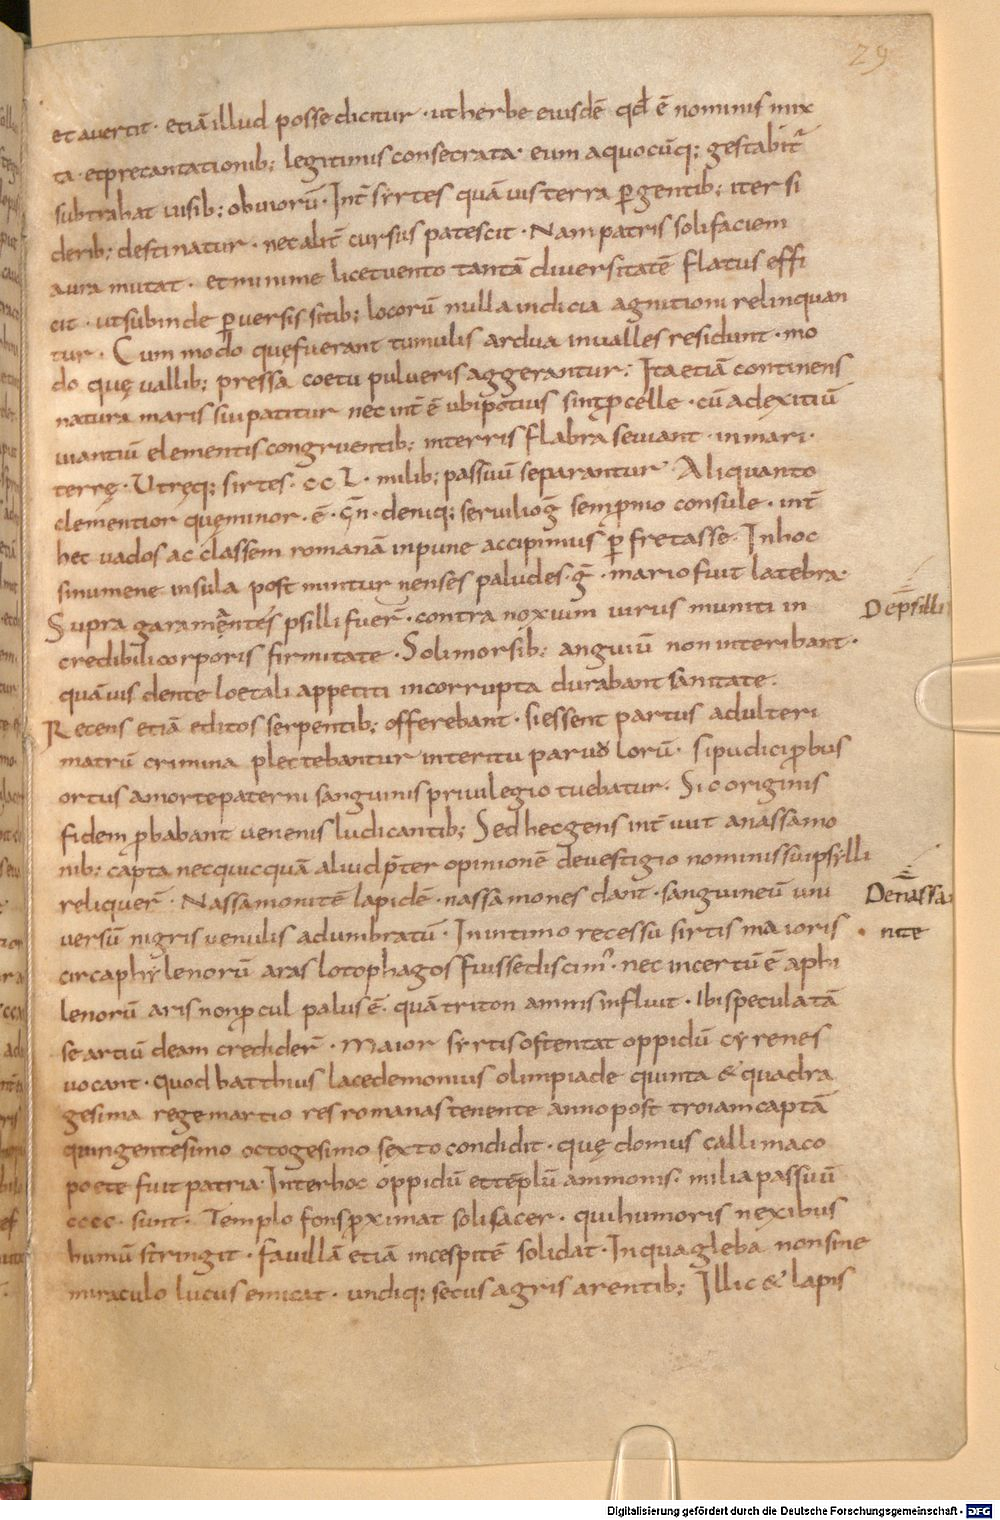 29
et auertit · etiā illud posse dicitur · ut herbe eiusdē qđ ē nominis mix
ta · et precantationib; legitimis consecrata · eum a quocūq; gestabit᷑
subtrahat uisib; obuiorū · Int̄ syrtes quāuis terra ꝑgentib; iter si
derib; destinatur · nec alit̄ cursus patescit · Nam patris soli faciem
aura mutat · et minime licet uento tantā diuersitatē flatus effi
cit · ut subinde ꝑuersis sitib; locorū nulla indicia agnitioni relinquan
tur · Cum modo quę fuerant tumulis ardua in ualles residunt · mo
do quę uallib; pressa coetu pulueris aggerantur · Ita etiā continens
natura maris sui patitur nec int̄ ē ubi potius sint ꝓcelle · cū ad exitiū
uiantiū elementis congruentib; in terris flabra seuiant · in mari ·
terrę · Utręq; sirtes · ccL · milib; passuū separantur · Aliquanto
clementior quę minor · ē · cn̄ · deniq; seruilio ḡ sempnio consule · int̄
hec uados ac classem romanā inpune accipimus ꝑfretasse · In hoc
sinu mene insula post minturnenses paludes · ḡ · mario fuit latebra ·
Supra garamantes psilli fuer̄ · contra noxium uirus muniti in
credibili corporis firmitate · Soli morsib; anguiū non interibant ·
quāuis dente loetali appetiti incorrupta durabant sanitate ·
Recens etiā editos serpentib; offerebant · si essent partus adulteri
matrū crimina plectebantur interitu paruolorū · si pudici ꝓbus
ortus a morte paterni sanguinis priuilegio tuebatur · Sic originis
fidem ꝓbabant uenenis iudicantib; Sed hec gens int̄iuit a nassamo
nib; capta nec quicquā aliud p̄ter opinionē de uestigio nominis sui psylli
reliquer̄ · Nassamonitē lapidē · nassamones dant · sanguineū uni
uersū nigris uenulis adumbratū · In intimo recessu sirtis maioris
circa phylenorū aras lotophagos fuisse discim᷒ · nec incertū ē a phi
lenorū aris non ꝓcul palus ē · quā triton amnis influit · Ibi speculatā
se artiū deam credider̄ · Maior syrtis ostentat oppidū cyrenes
uocant · quod batthius lacedemonius olimpiade quinta & quadra
gesima rege martio res romanas tenente anno post troiam captā
quingentesimo octogesimo sexto condidit · quę domus callimaco
poete fuit patria · Inter hoc oppidū et tēplū ammonis · milia passuū
cccc · sunt · Templo fons ꝓximat soli sacer · qui humoris nexibus
humū stringit · fauillā etiā in cespitē solidat · In qua gleba non sine
miraculo lucus emicat · undiq; secus agris arentib; Illic & lapis
De psilli
De nassa
nite
Digitalisierung gefördert durch die Deutsche Forschungsgemeinschaft - DFG